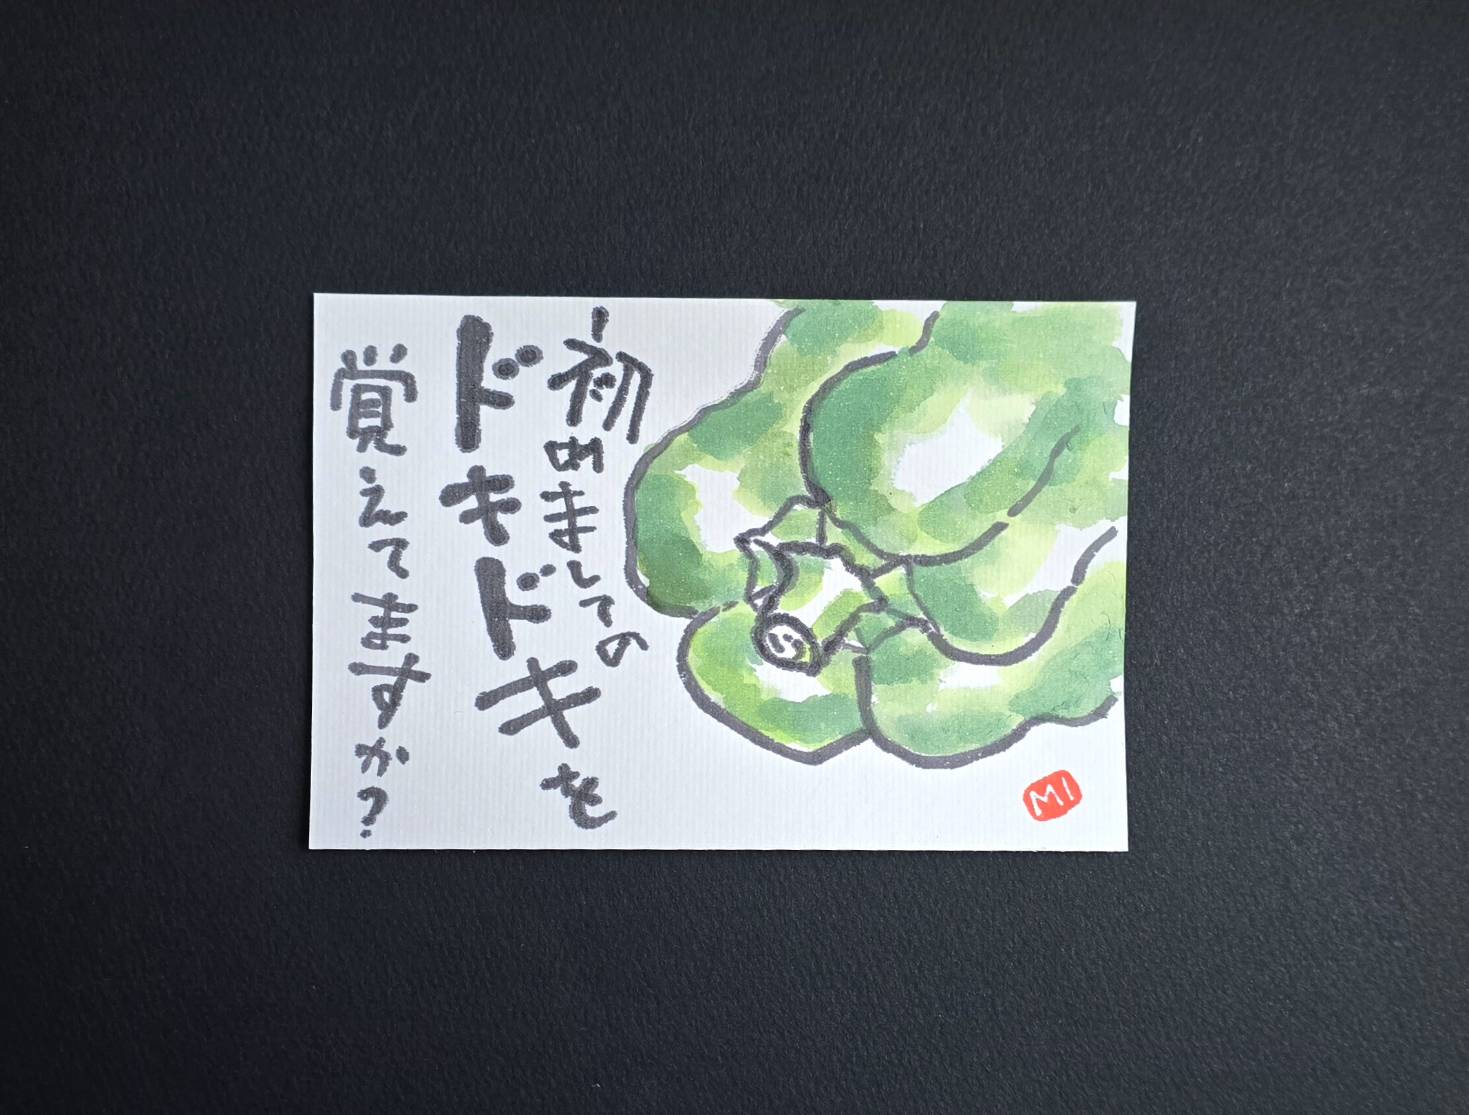 初めましての
ドキドキを
覚えてますか?
MI